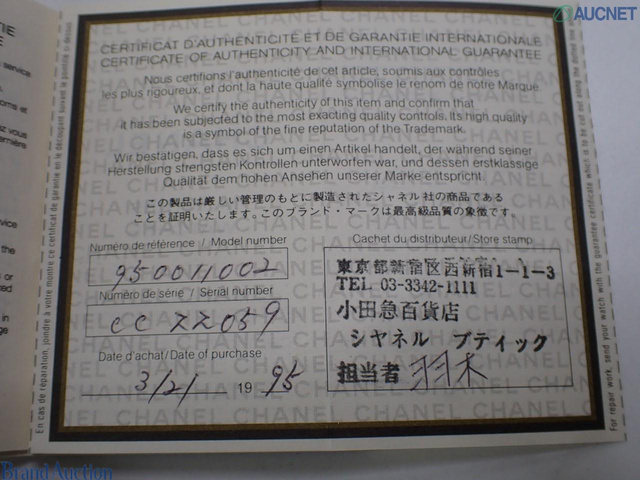 AUCNET
CERTIFICAT D'AUTHENTICITÉ ET DE GARANTIE INTERNATIONALE
CERTIFICATE OF AUTHENTICITY AND INTERNATIONAL GUARANTEE
Nous certifions l'authenticité de cet article, soumis aux contrôles
les plus rigoureux, et dont la haute qualité symbolise le renom de notre Marque.
We certify the authenticity of this item and confirm that
it has been subjected to the most exacting quality controls. Its high quality
is a symbol of the fine reputation of the Trademark.
Wir bestätigen, dass es sich um einen Artikel handelt, der während seiner
Herstellung strengsten Kontrollen unterworfen war, und dessen erstklassige
Qualität dem hohen Ansehen unserer Marke entspricht.
この製品は厳しい管理のもとに製造されたシャネル社の商品である
ことを証明いたします。このブランド・マークは最高級品質の象徴です。
Numéro de référence / Model number
950011002
Numéro de série / Serial number
CC 22059
Date d'achat / Date of purchase
3/21 1995
Cachet du distributeur/Store stamp
東京都新宿区西新宿1-1-3
TEL 03-3342-1111
小田急百貨店
シャネル ブティック
担当者 羽木
En cas de réparation, joindre à votre montre ce certificat de garantie en le découpant suivant le pointillé ci-dessus.
For repair work, send your watch with the guarantee certificate which is to be cut out along the dotted line
Brand Auction